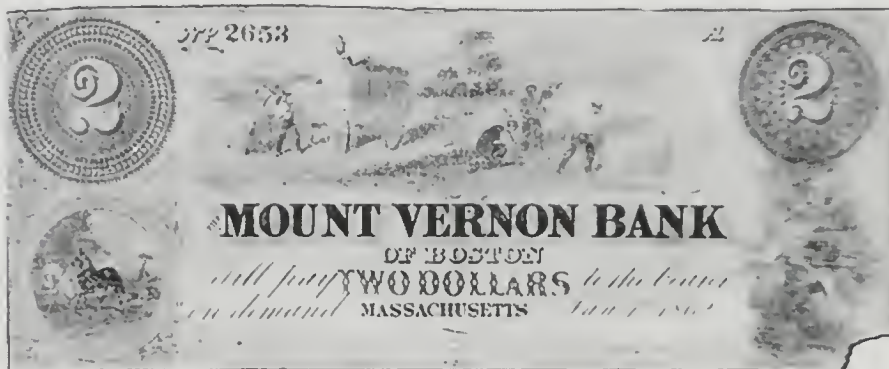 2 No 2653 A 2
MOUNT VERNON BANK
OF BOSTON
will pay TWO DOLLARS to the bearer
on demand MASSACHUSETTS